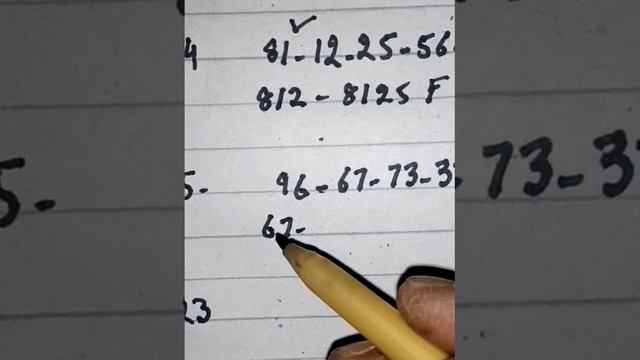 4 81-12-25-56
812 - 8125 F
5- 96-67-73-3
67-
23